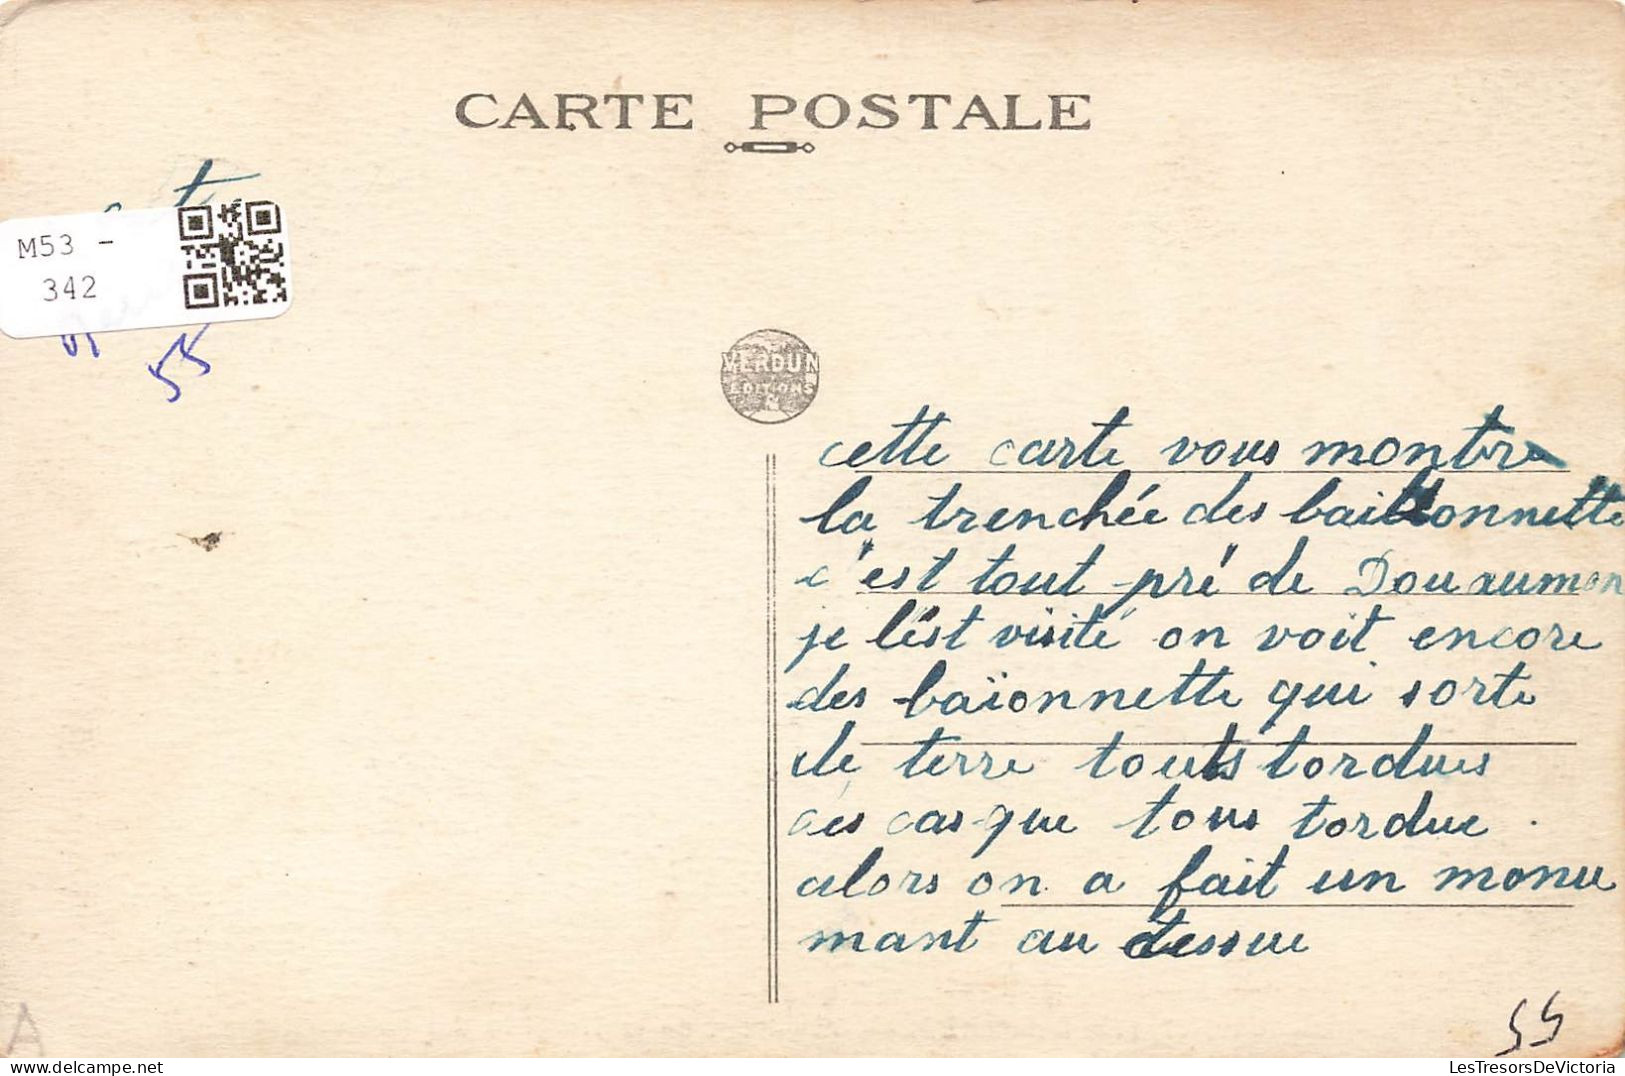 CARTE POSTALE
M53 -
342
55
VERDUN
EDITIONS
R
cette carte vous montre
la trenchée des baillonnette
c'est tout pré de Douaumon
je l'est visité on voit encore
des baïonnette qui sorte
de terre touts tordues
des casque tous tordue .
alors on a fait un monu
mant au dessue
55
A
LesTresorsDeVictoria